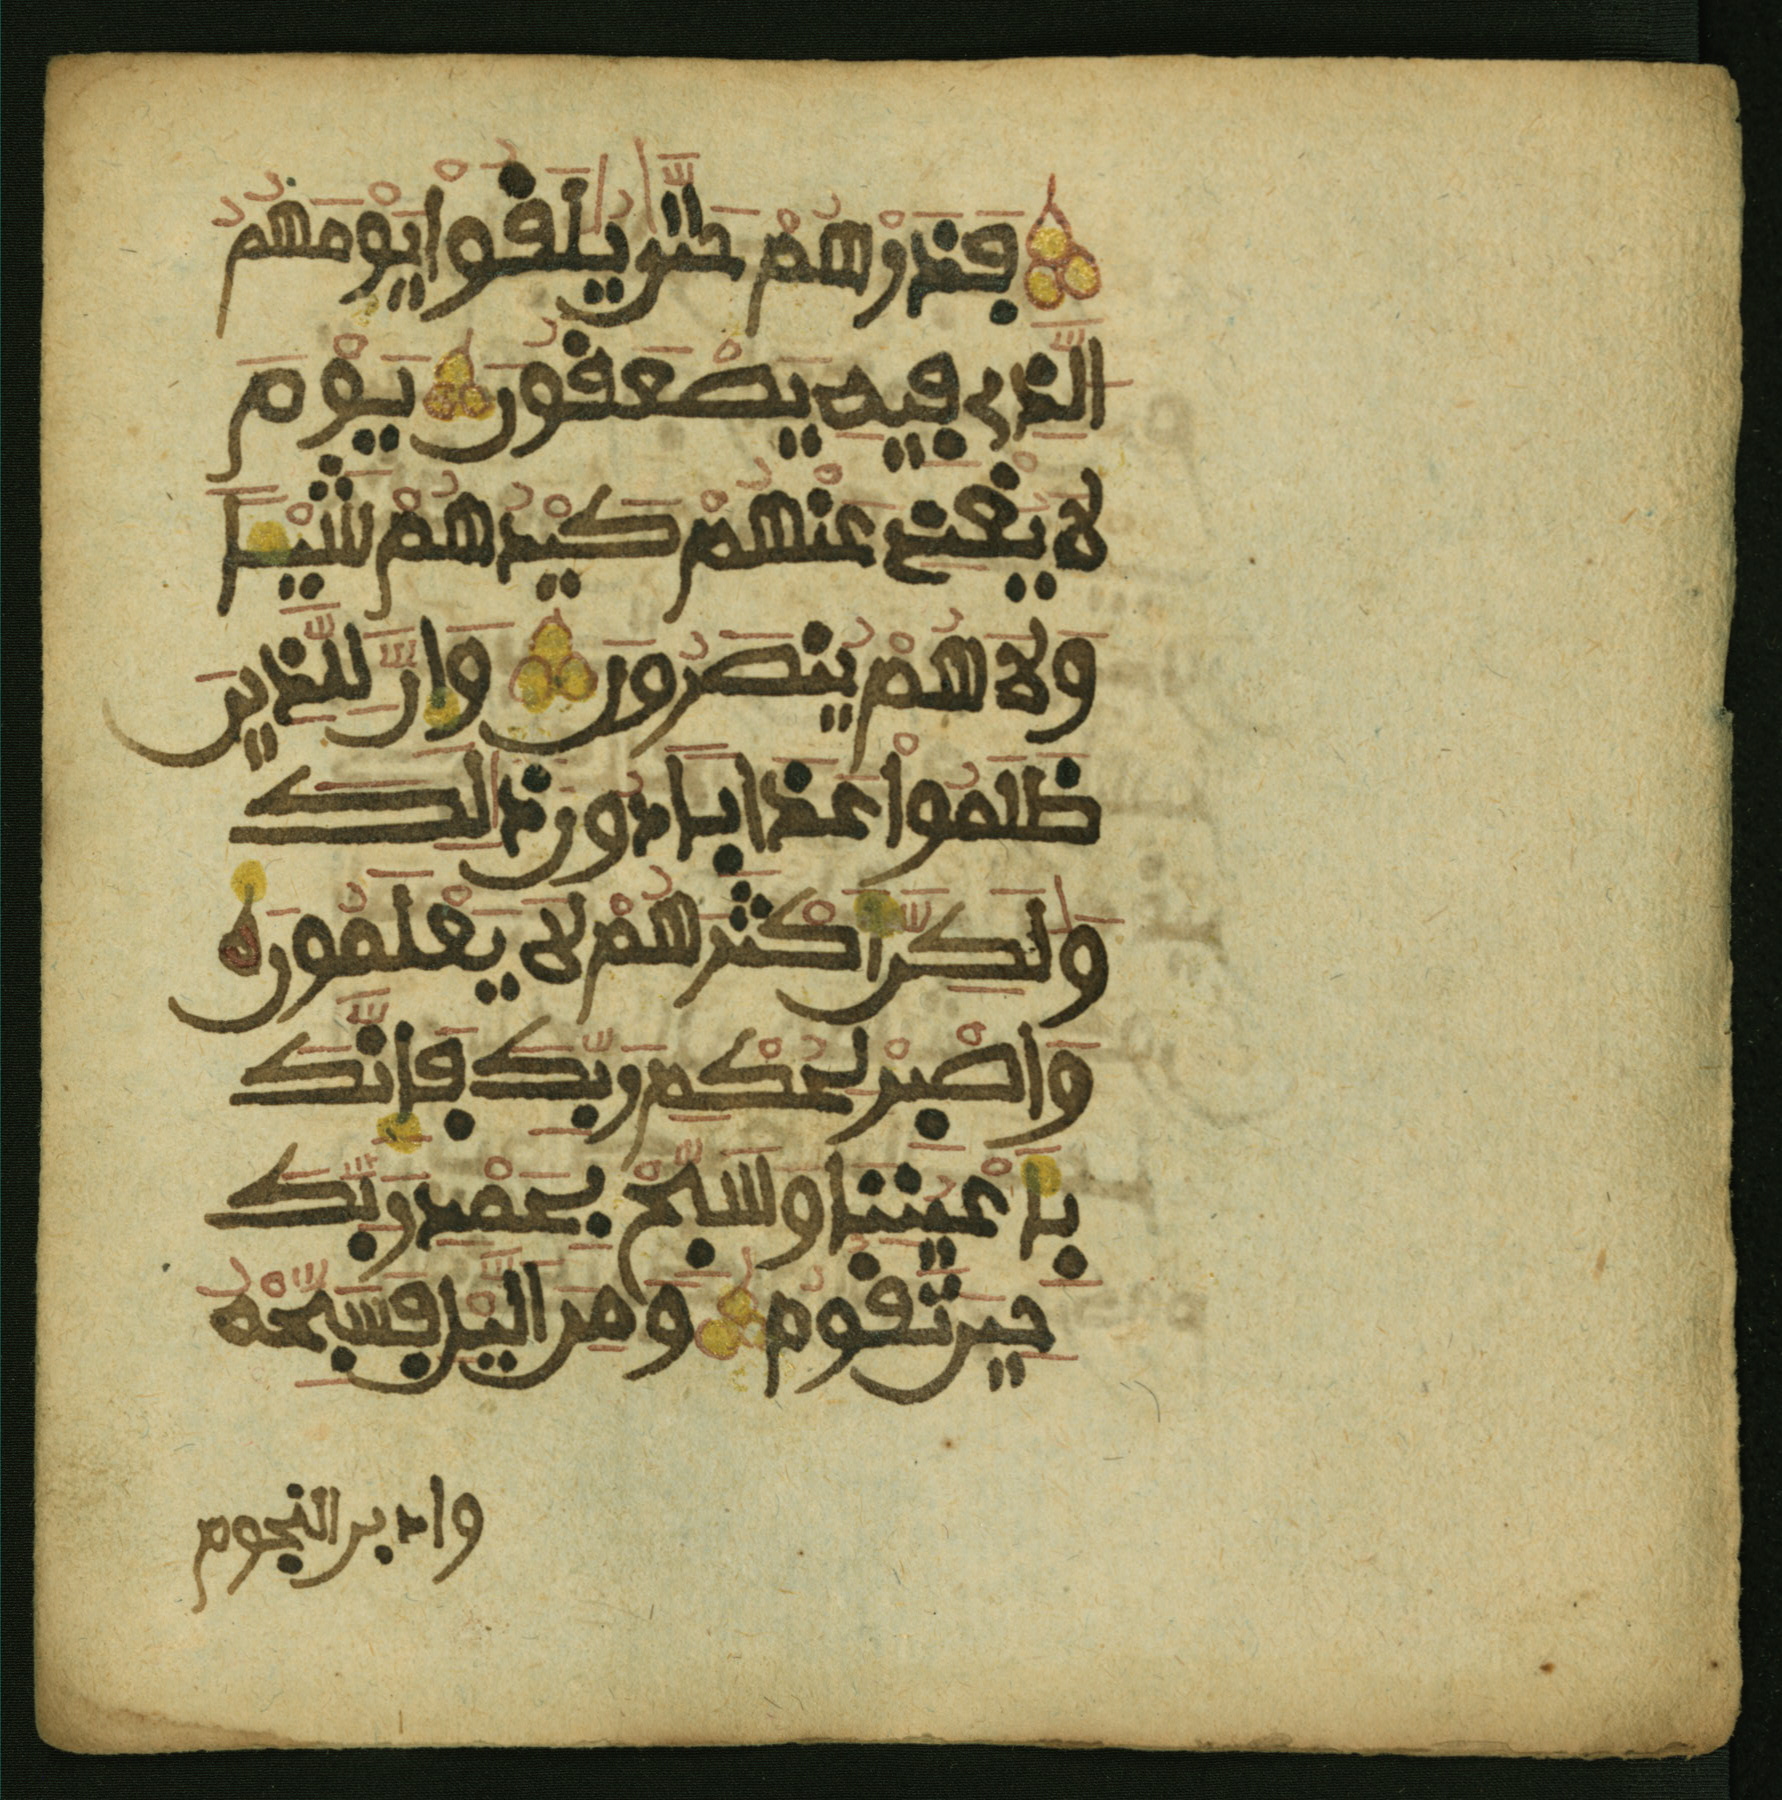 فَذَرْهُمْ حَتَّىٰ يُلَٰقُوا۟ يَوْمَهُمُ
الَّذِے فِيهِ يَصْعَقُونَ يَوْمَ
لَا يُغْنِے عَنْهُمْ كَيْدُهُمْ شَيْـًٔا
وَلَا هُمْ يُنصَرُونَ وَإِنَّ لِلَّذِينَ
ظَلَمُوا۟ عَذَابًا دُونَ ذَٰلِكَ
وَلَٰكِنَّ أَكْثَرَهُمْ لَا يَعْلَمُونَ
وَاصْبِرْ لِحُكْمِ رَبِّكَ فَإِنَّكَ
بِأَعْيُنِنَا وَسَبِّحْ بِحَمْدِ رَبِّكَ
حِينَ تَقُومُ وَمِنَ الَّيْلِ فَسَبِّحْهُ
وادبر النجوم